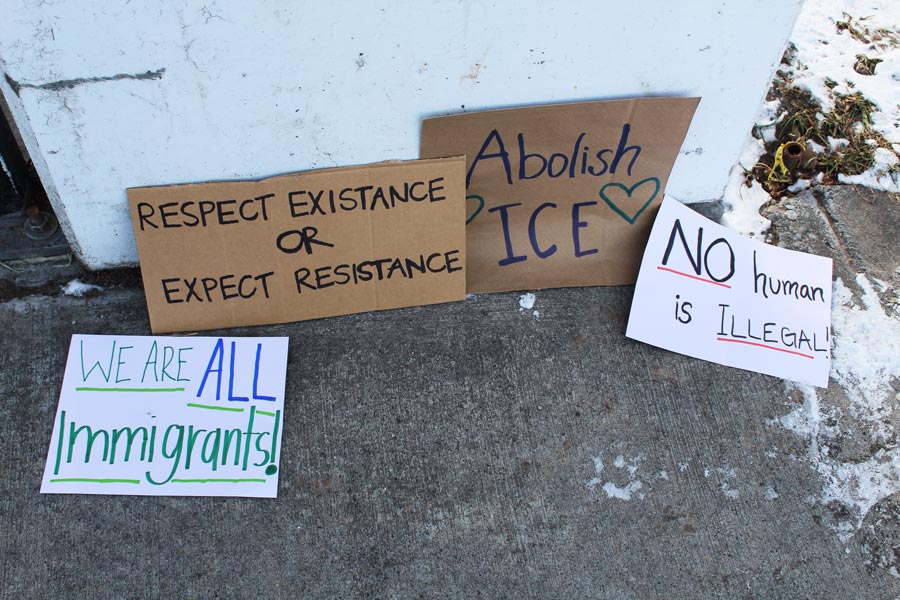 RESPECT EXISTANCE
OR
EXPECT RESISTANCE
Abolish
ICE
NO human
is ILLEGAL!
WE ARE ALL
Immigrants!